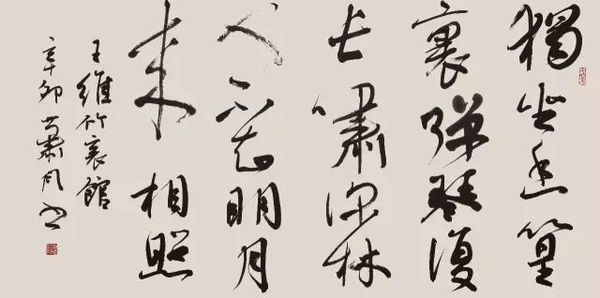 獨坐幽篁
裏彈琴復
長嘯深林
人不知明月
來相照
王維竹裏館
辛卯 書